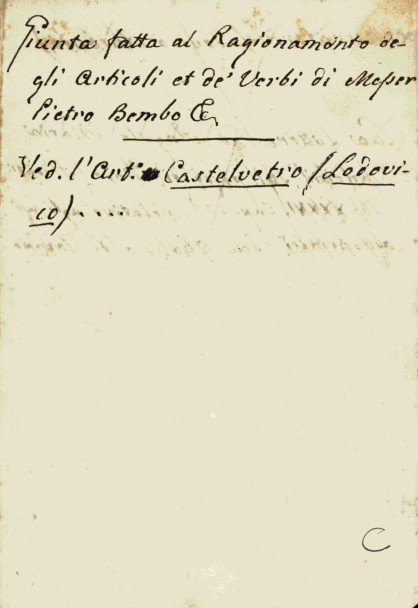 Giunta fatta al Ragionamento de-
gli Articoli et de' Verbi di Messer
Pietro Bembo &c.
Ved. l'Art.º Castelvetro (Lodovi-
co) . . . .
C